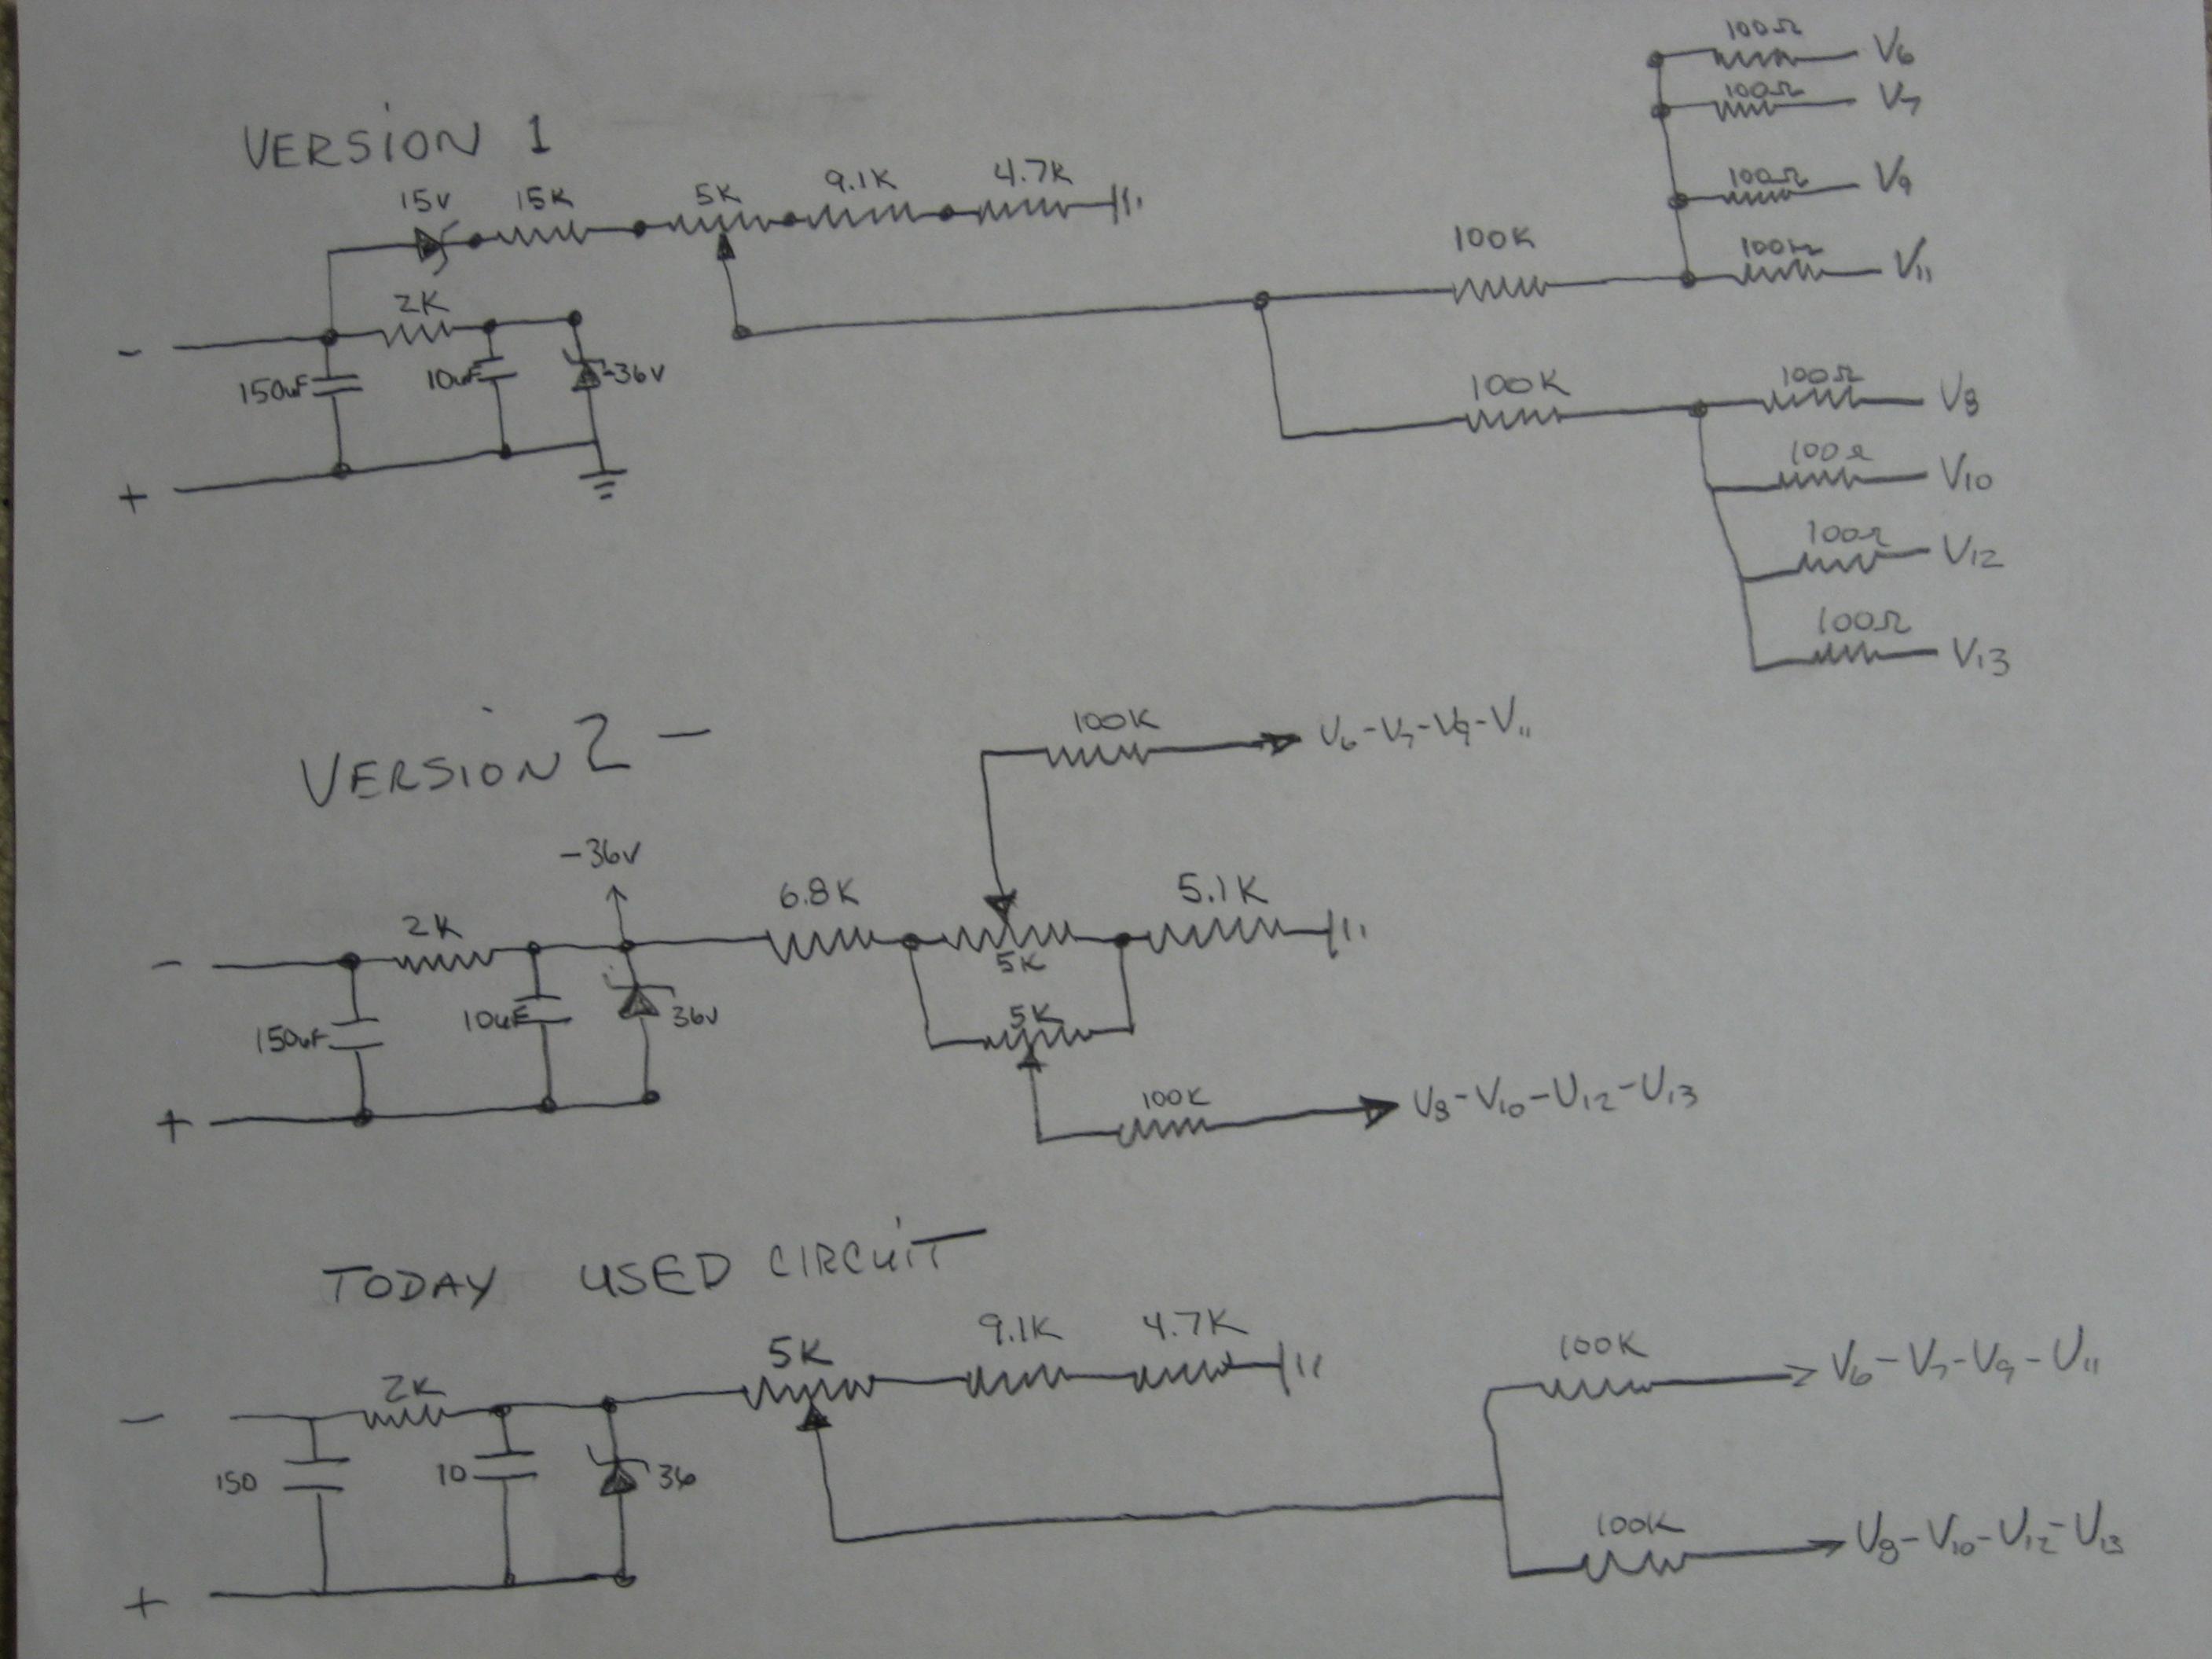 VERSION 1
100Ω V6
100Ω V7
100Ω V9
100Ω V11
15V 15K 5K 9.1K 4.7K
100K
- 2K
150uF 10uF -36V
+
100K 100Ω V8
100Ω V10
100Ω V12
100Ω V13
VERSION 2 -
100K V6-V7-V9-V11
-36V
- 2K 6.8K 5K 5.1K
150uF 10uF 36V 5K
+
100K V8-V10-V12-V13
TODAY USED CIRCUIT
- 2K 5K 9.1K 4.7K
100K V6-V7-V9-V11
150 10 36
+
100K V8-V10-V12-V13